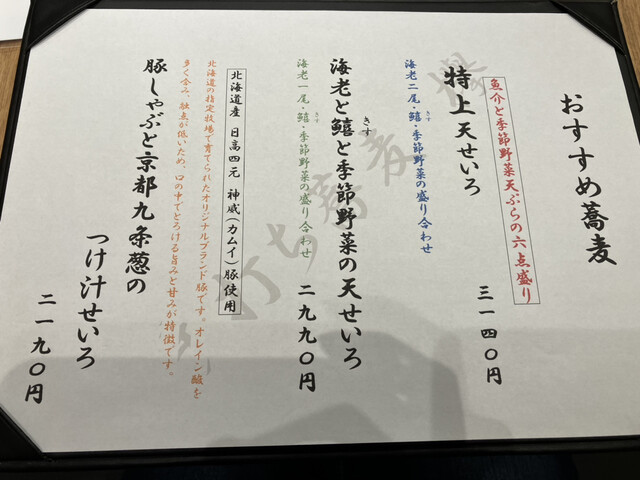 おすすめ蕎麦
魚介と季節野菜天ぷらの六点盛り
特上天せいろ
三一四〇円
海老二尾・鱚・季節野菜の盛り合わせ
きす
海老と鱚と季節野菜の天せいろ
きす
二九九〇円
海老一尾・鱚・季節野菜の盛り合わせ
きす
北海道産 日高四元 神威(カムイ)豚使用
北海道の指定牧場で育てられたオリジナルブランド豚です。オレイン酸を
多く含み、融点が低いため、口の中でとろける旨みと甘みが特徴です。
豚しゃぶと京都九条葱の
つけ汁せいろ
二一九〇円
打ち蕎麦